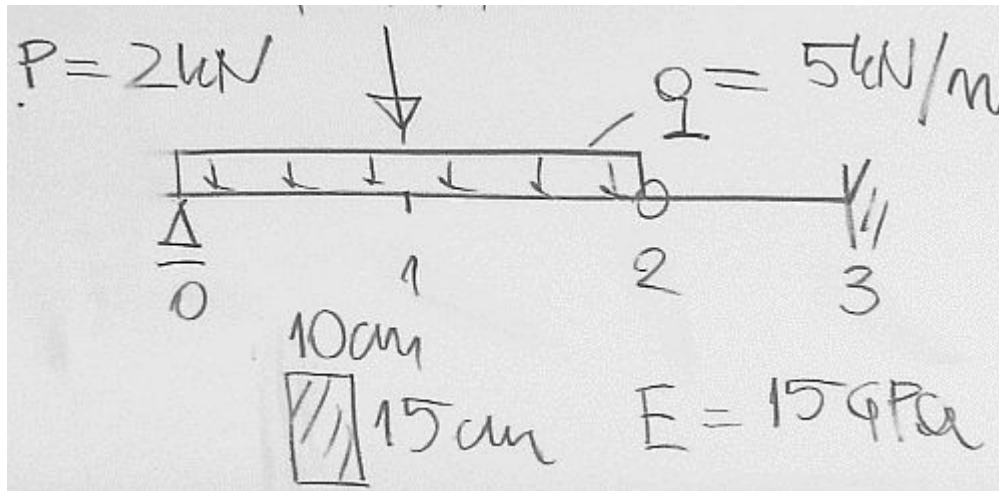 P = 2kN
q = 5kN/m
0
1
2
3
10cm
15cm
E = 15GPa